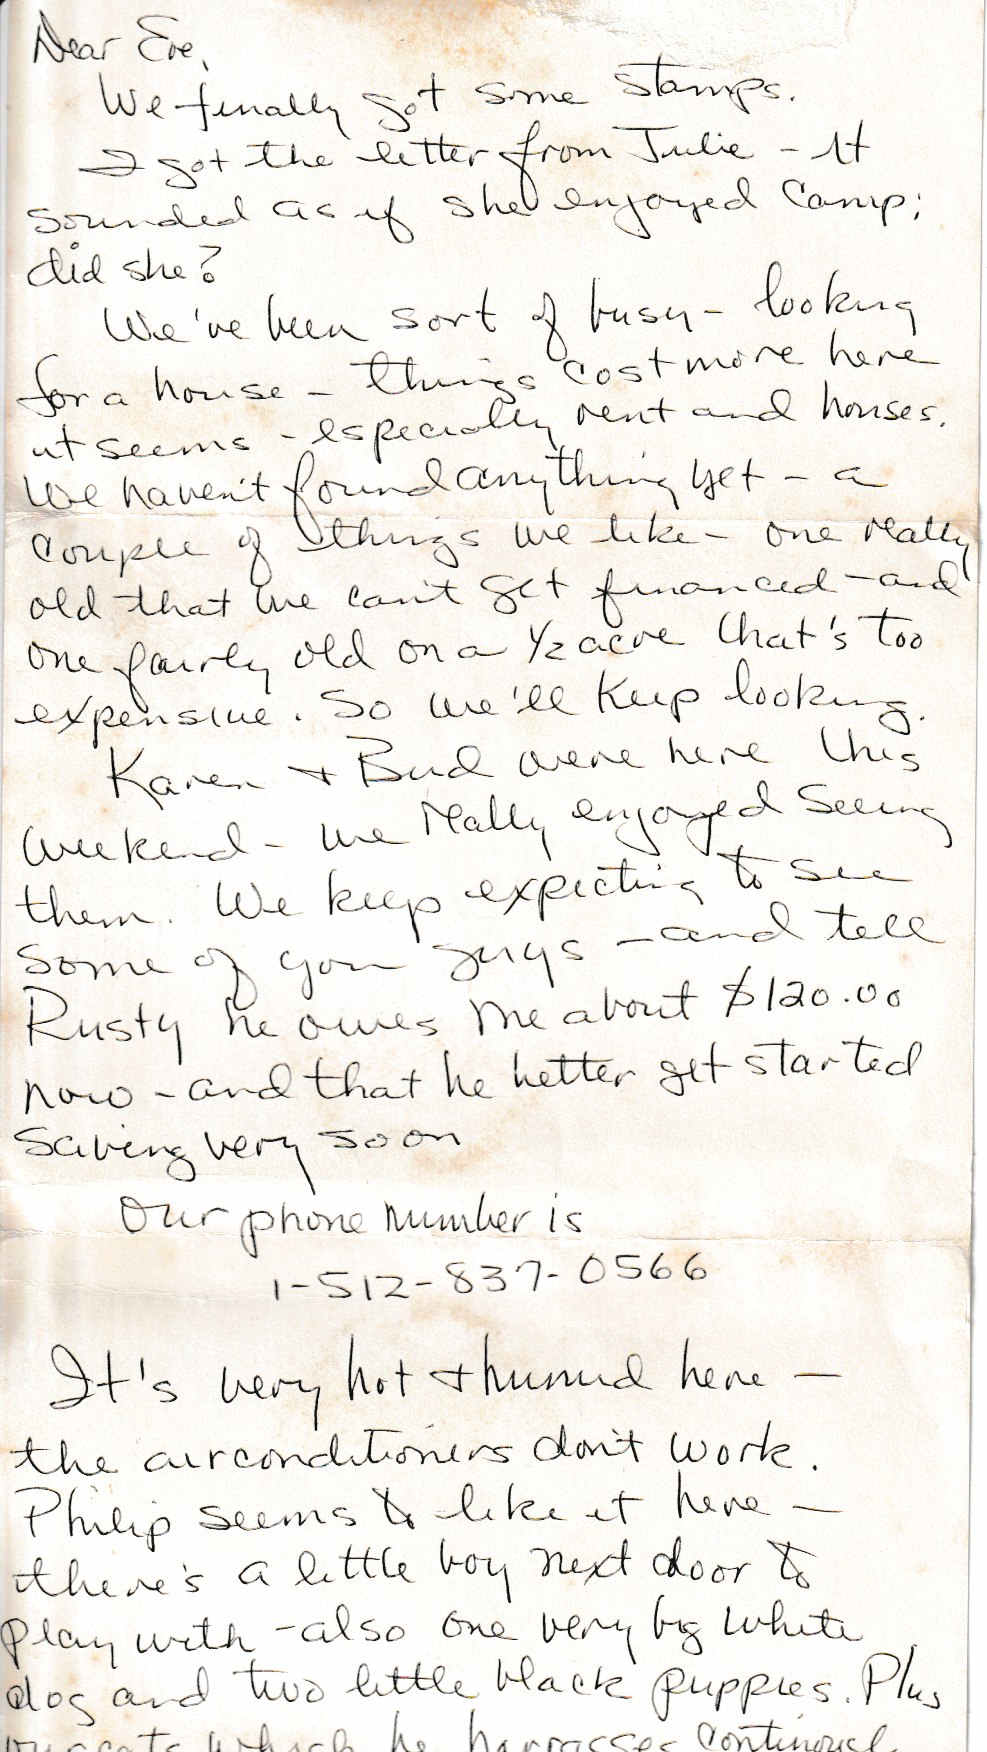 Dear Eve,
We finally got some stamps.
I got the letter from Julie - It
sounded as if she enjoyed Camp;
did she?
We've been sort of busy - looking
for a house - things cost more here
it seems - especially rent and houses.
We haven't found anything yet - a
couple of things we like - one really
old that we can't get financed - and
one fairly old on a 1/2 acre that's too
expensive. So we'll keep looking.
Karen + Bud were here this
weekend - we really enjoyed seeing
them. We keep expecting to see
some of you guys - and tell
Rusty he owes me about $120.00
now - and that he better get started
saving very soon
Our phone number is
1-512-837-0566
It's very hot + humid here -
the airconditioners don't work.
Philip seems to like it here -
there's a little boy next door to
play with - also one very big white
dog and two little black puppies. Plus
our cats which he harrasses continual